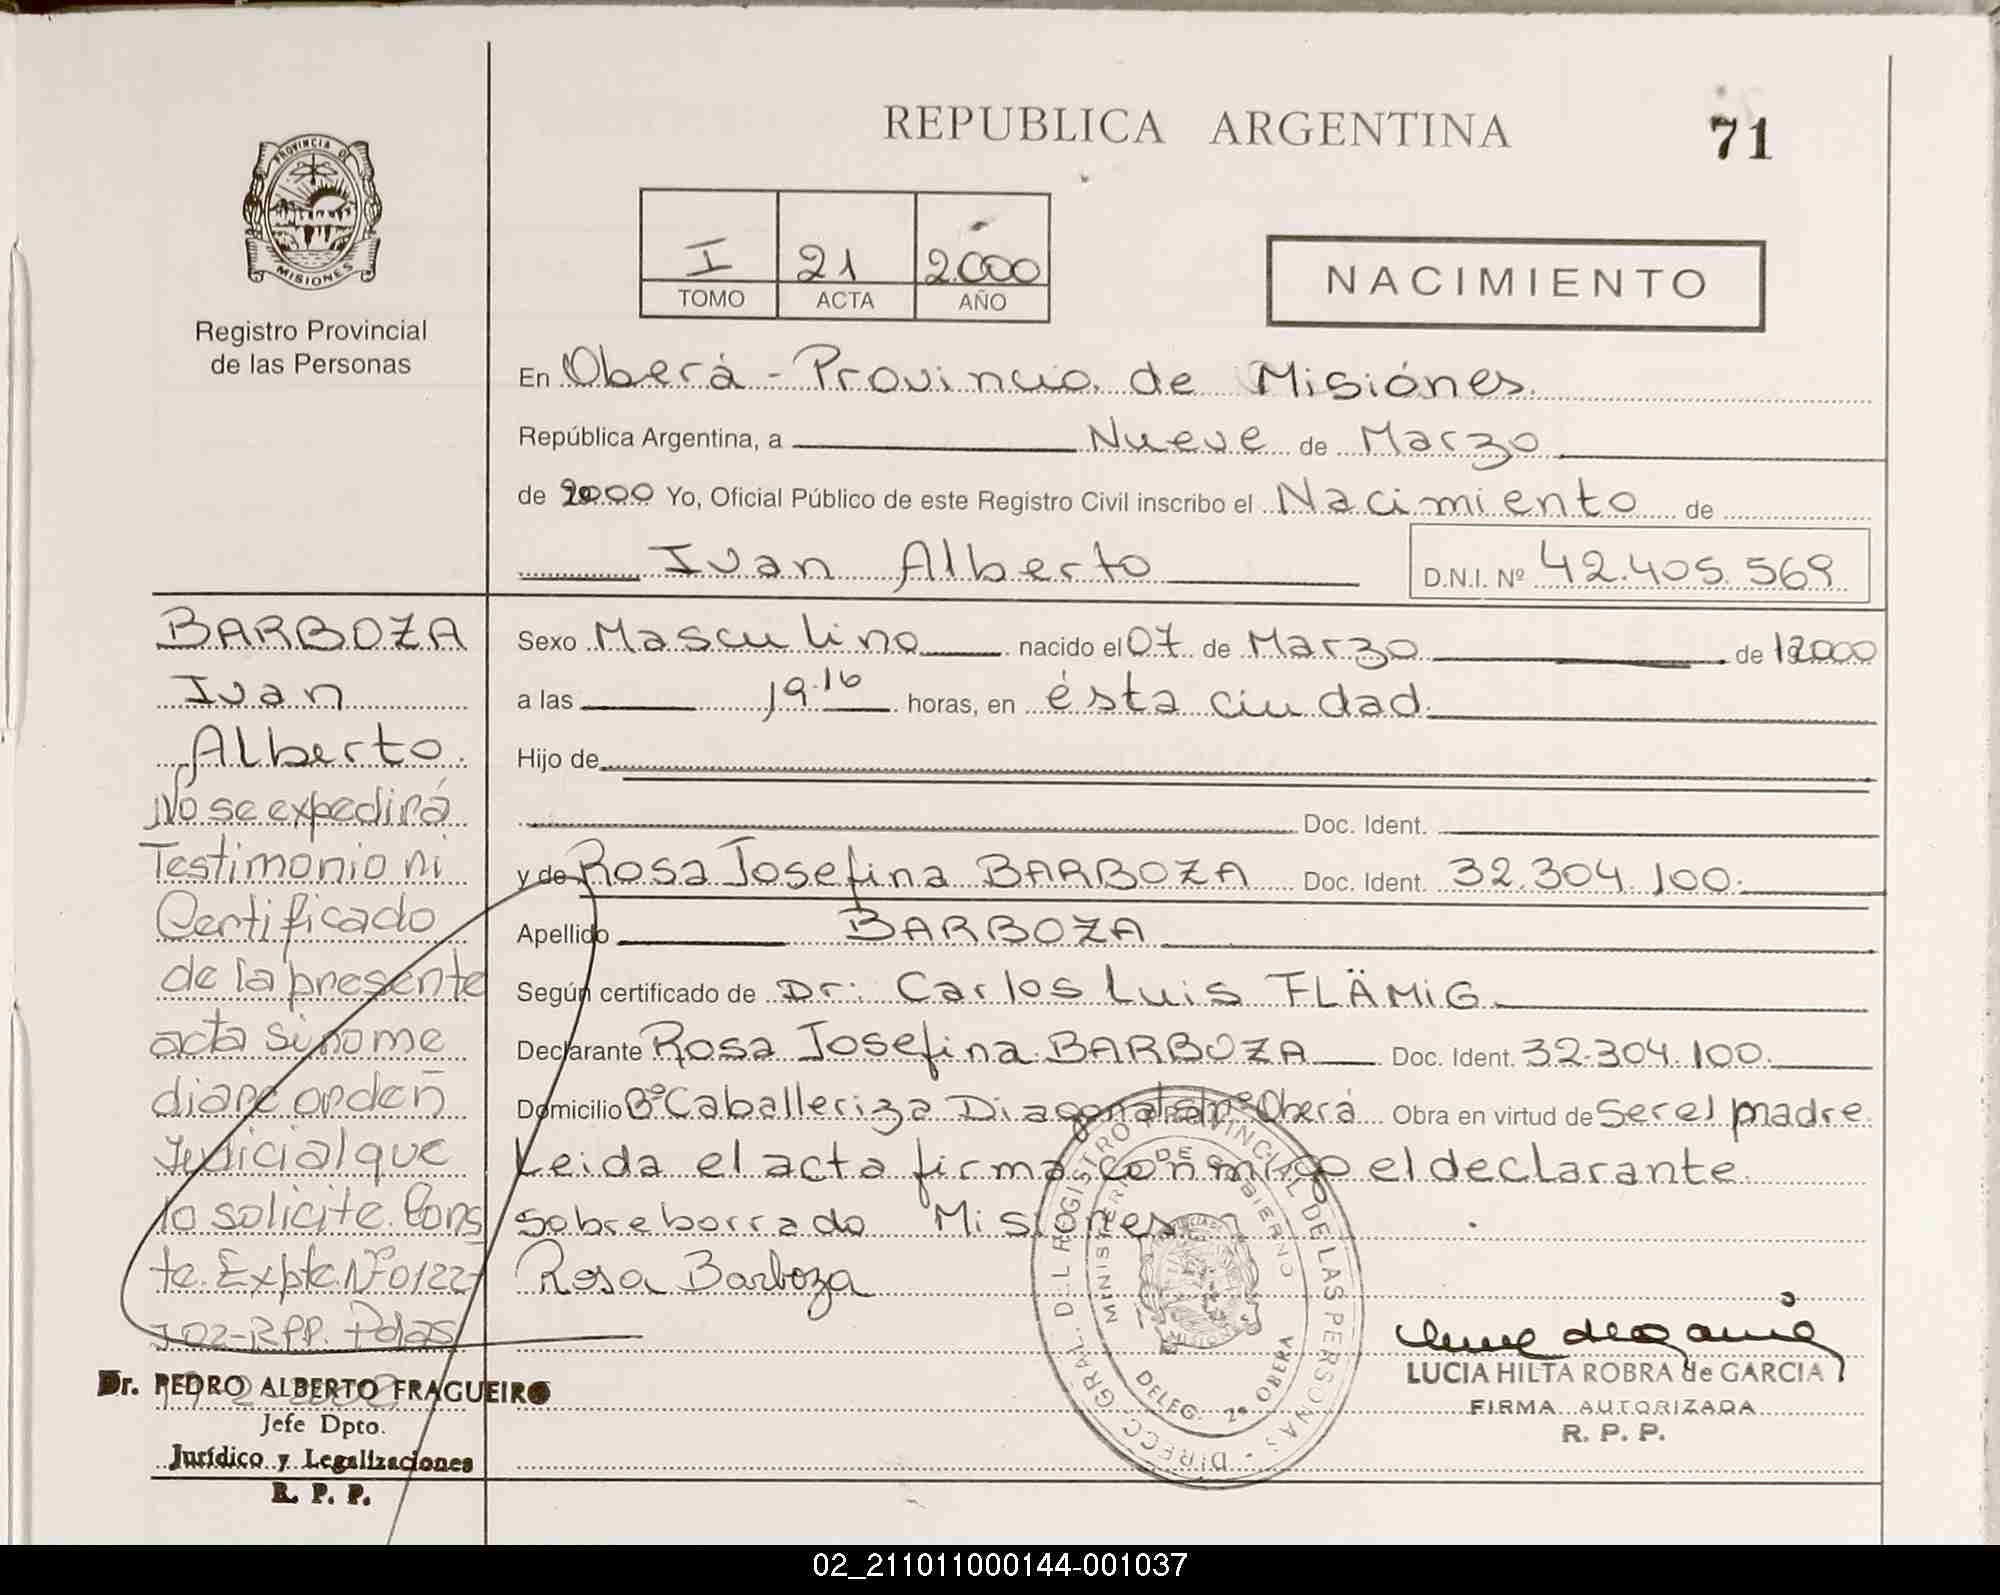 REPUBLICA ARGENTINA
71
PROVINCIA DE
MISIONES
Registro Provincial
de las Personas
I 21 2.000
TOMO ACTA AÑO
NACIMIENTO
En Oberá - Provincia de Misiónes
República Argentina, a Nueve de Marzo
de 2000 Yo, Oficial Público de este Registro Civil inscribo el Nacimiento de
Ivan Alberto D.N.I. Nº 42.405.569
BARBOZA
Ivan
Alberto.
No se expedirá
Testimonio ni
Certificado
de la presente
acta si no me
diare orden
Judicial que
lo solicite. Cons
te. Expte. Nº 0122
J 02-RPP. Pdas
Dr. PEDRO ALBERTO FRAGUEIRO
Jefe Dpto.
Jurídico y Legalizaciones
R. P. P.
Sexo Masculino nacido el 07 de Marzo de 192000
a las 19.16 horas, en ésta ciudad.
Hijo de
Doc. Ident.
y de Rosa Josefina BARBOZA Doc. Ident. 32.304.100.
Apellido BARBOZA
Según certificado de Dr: Carlos Luis FLÄMIG
Declarante Rosa Josefina BARBOZA Doc. Ident. 32.304.100.
Domicilio Bº Caballeriza Diagonal s/nº Oberá Obra en virtud de ser el madre
Leida el acta firma conmigo el declarante.
Sobreborrado Misiónes
Rosa Barboza
DIRECC. GRAL. DEL REGISTRO PROVINCIAL DE LAS PERSONAS -
MINISTERIO DE GOBIERNO
DELEG. 2ª OBERA
LUCIA HILTA ROBRA de GARCIA
FIRMA AUTORIZADA
R. P. P.
02_211011000144-001037